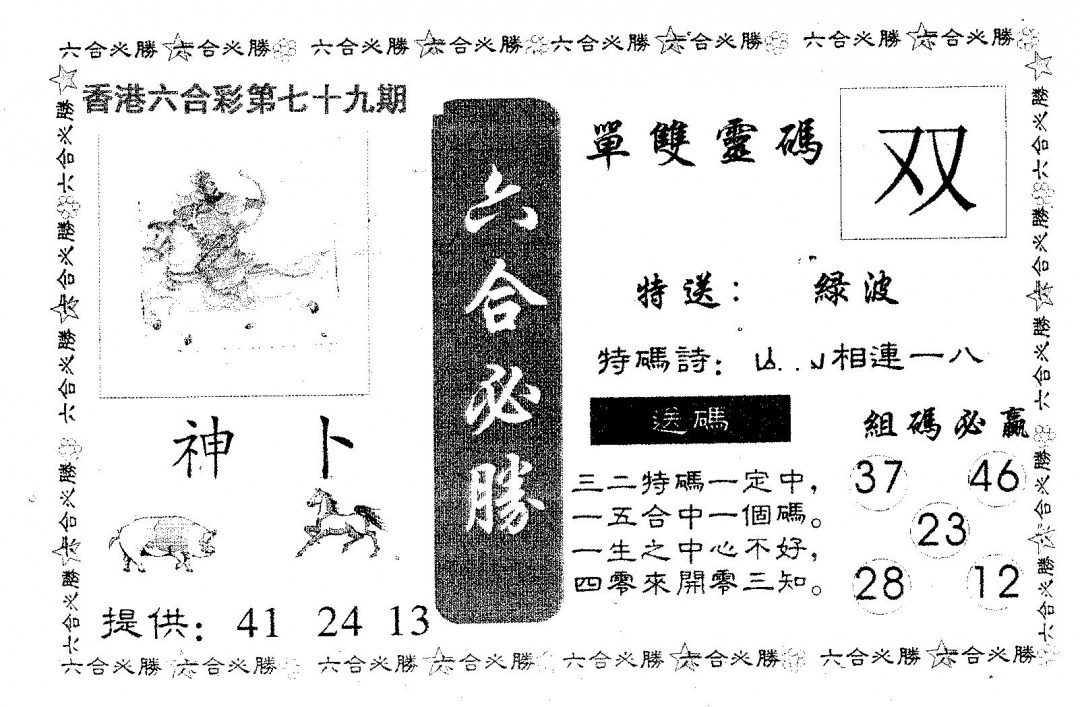 六合必勝 六合必勝 六合必勝 六合必勝 六合必勝 六合必勝 六合必勝 六合必勝
六合必勝 六合必勝 六合必勝 六合必勝 六合必勝
香港六合彩第七十九期
神 卜
提供：41 24 13
六合必勝
單雙靈碼
双
特送： 緑波
特碼詩： 相連一八
送碼
三二特碼一定中，
一五合中一個碼。
一生之中心不好，
四零來開零三知。
組碼必贏
37 46
23
28 12
六合必勝 六合必勝 六合必勝 六合必勝 六合必勝
六合必勝 六合必勝 六合必勝 六合必勝 六合必勝 六合必勝 六合必勝 六合必勝